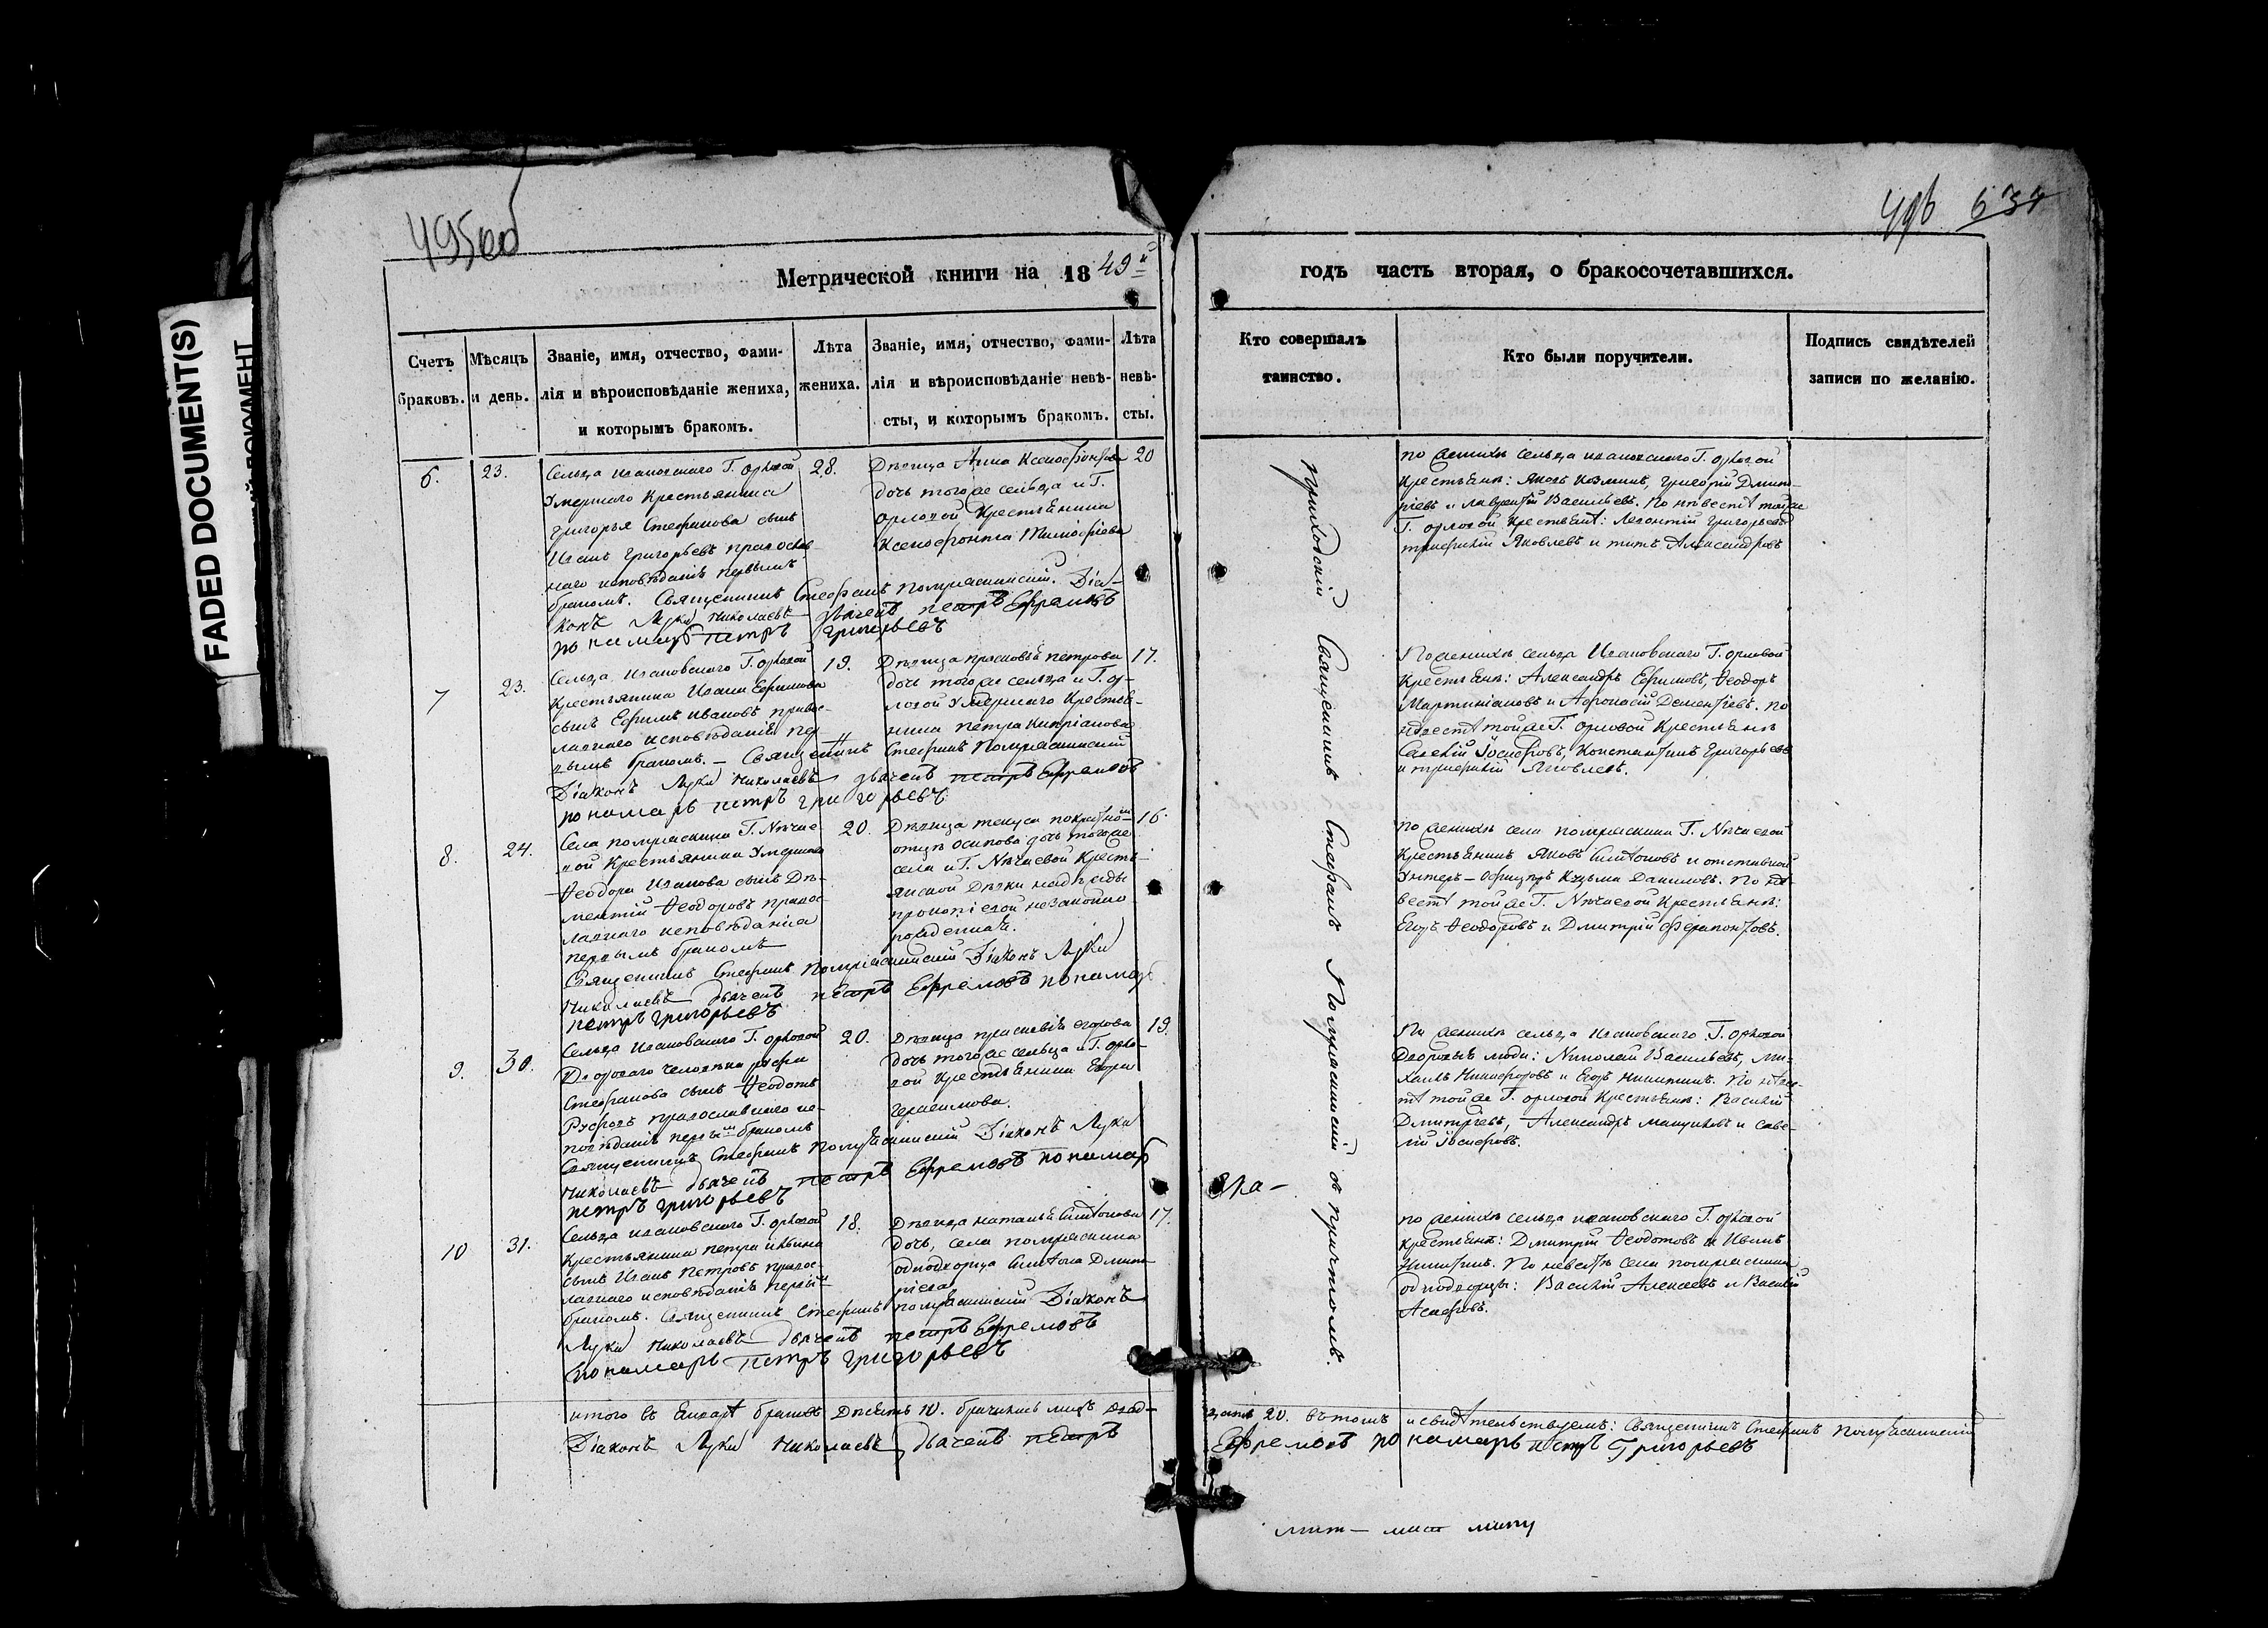 495об
496 637
Метрической книги на 1849й
годъ часть вторая, о бракосочетавшихся.
Счетъ браковъ.
Мѣсяцъ и день.
Званіе, имя, отчество, фами-
лія и вѣроисповѣданіе жениха,
и которымъ бракомъ.
Лѣта
жениха.
Званіе, имя, отчество, фами-
лія и вѣроисповѣданіе невѣ-
сты, и которымъ бракомъ.
Лѣта
невѣ-
сты.
Кто совершалъ
таинство.
Кто были поручители.
Подпись свидѣтелей
записи по желанію.
6. 23.
Сельца Ивановскаго Г. Орловой
умершаго Крестьянина
Григорья Стефанова сынъ
Иванъ Григорьевъ православ-
наго исповѣданія первымъ
бракомъ. Священникъ Стефанъ Діа-
конъ Лука Николаевъ дьячекъ петръ Ефремовъ
пономарь петръ григорьевъ
28.
Дѣвица Анна Ксенофонтова
дочь тогоже сельца и Г.
Орловой Крестьянина
Ксенофонта Тимофіева
20
по женихѣ сельца Ивановскаго Г. Орловой
Крестьяне: Яковъ Козминъ, Григорій Дмит-
ріевъ и Лаврентій Васильевъ. По невѣстѣ тойже
Г. Орловой Крестьяне: Леонтій Григорьевъ
Трифилій Яковлевъ и Титъ Александровъ
7 23.
Сельца Ивановскаго Г. Орловой
Крестьянина Ивана Ефимова
сынъ Ефимъ Ивановъ право-
славнаго исповѣданія пер
вымъ бракомъ. — Священникъ Стефанъ
Діаконъ Лука Николаевъ дьячекъ петръ Ефремовъ
пономарь петръ григорьевъ
19.
Дѣвица Прасковья Петрова
дочь тогоже сельца и Г. Ор-
ловой умершаго Крестья-
нина Петра Кипріанова
17.
По женихѣ сельца Ивановскаго Г. Орловой
Крестьяне: Александръ Ефимовъ, Ѳеодоръ
Мартиніановъ и Афонасій Дементіевъ. по
невѣстѣ тойже Г. Орловой Крестьяне
Савелій Іосифовъ, Константинъ Григорьевъ
и Трифилій Яковлевъ.
8. 24.
Села Г. Нѣчае-
вой Крестьянина умершаго
Ѳеодора Иванова сынъ Де-
ментій Ѳеодоровъ право-
славнаго исповѣданія
первымъ бракомъ
Священникъ Стефанъ Діаконъ Лука
Николаевъ дьячекъ петръ Ефремовъ пономарь
петръ григорьевъ
20.
Дѣвица Текуса по крестном
отцѣ Осипова дочь тогоже
села и Г. Нѣчаевой Кресть-
янской Дѣвки Надежды
Прокопіевой незаконно
рожденная.
16.
по женихѣ села Г. Нѣчаевой
Крестьянинъ Яковъ Антоновъ и отставной
Унтеръ-Офицеръ Кузьма Даниловъ. По не-
вѣстѣ тойже Г. Нѣчаевой Крестьяне:
Егоръ Ѳеодоровъ и Дмитрій Ферапонтовъ.
9. 30.
Сельца Ивановскаго Г. Орловой
Двороваго человѣка Руфа
Стефанова сынъ Ѳеодотъ
Руфовъ православнаго ис-
повѣданія первым бракомъ
Священникъ Стефанъ Діаконъ Лука
Николаевъ дьячекъ петръ Ефремовъ пономарь
петръ григорьевъ
20.
Дѣвица Прасковія Егорова
дочь тогоже сельца и Г. Орло-
вой Крестьянина Егора
Герасимова.
19.
По женихѣ сельца Ивановскаго Г. Орловой
Дворовые люди: Николай Васильевъ, Ми-
хаилъ Никифоровъ и Егоръ Никитинъ. По невѣс-
тѣ тойже Г. Орловой Крестьяне: Василій
Дмитріевъ, Александръ и Саве-
лій Іосифовъ.
10 31.
Сельца Ивановскаго Г. Орловой
Крестьянина Петра Ильина
сынъ Иванъ Петровъ право-
славнаго исповѣданія первым
бракомъ. Священникъ Стефанъ Діаконъ
Лука Николаевъ дьячекъ петръ Ефремовъ
пономарь петръ григорьевъ
18.
Дѣвица Наталья Антонова
дочь, села
однодворца Антона Дмит-
ріева
17.
по женихѣ сельца Ивановскаго Г. Орловой
крестьяне: Дмитрій Ѳеодотовъ и Иванъ
Никитинъ. По невѣстѣ села
однодворцы: Василій Алексѣевъ и Василій
приходскій Священникъ Стефанъ съ причтомъ.
итого въ Генварѣ браковъ Десять 10. брачныхъ лицъ двад-
цать 20. въ томъ и свидѣтельствуемъ: Священникъ Стефанъ
Діаконъ Лука Николаевъ, дьячекъ петръ
Ефремовъ пономарь петръ Григорьевъ
FADED DOCUMENT(S)
ДОКУМЕНТ